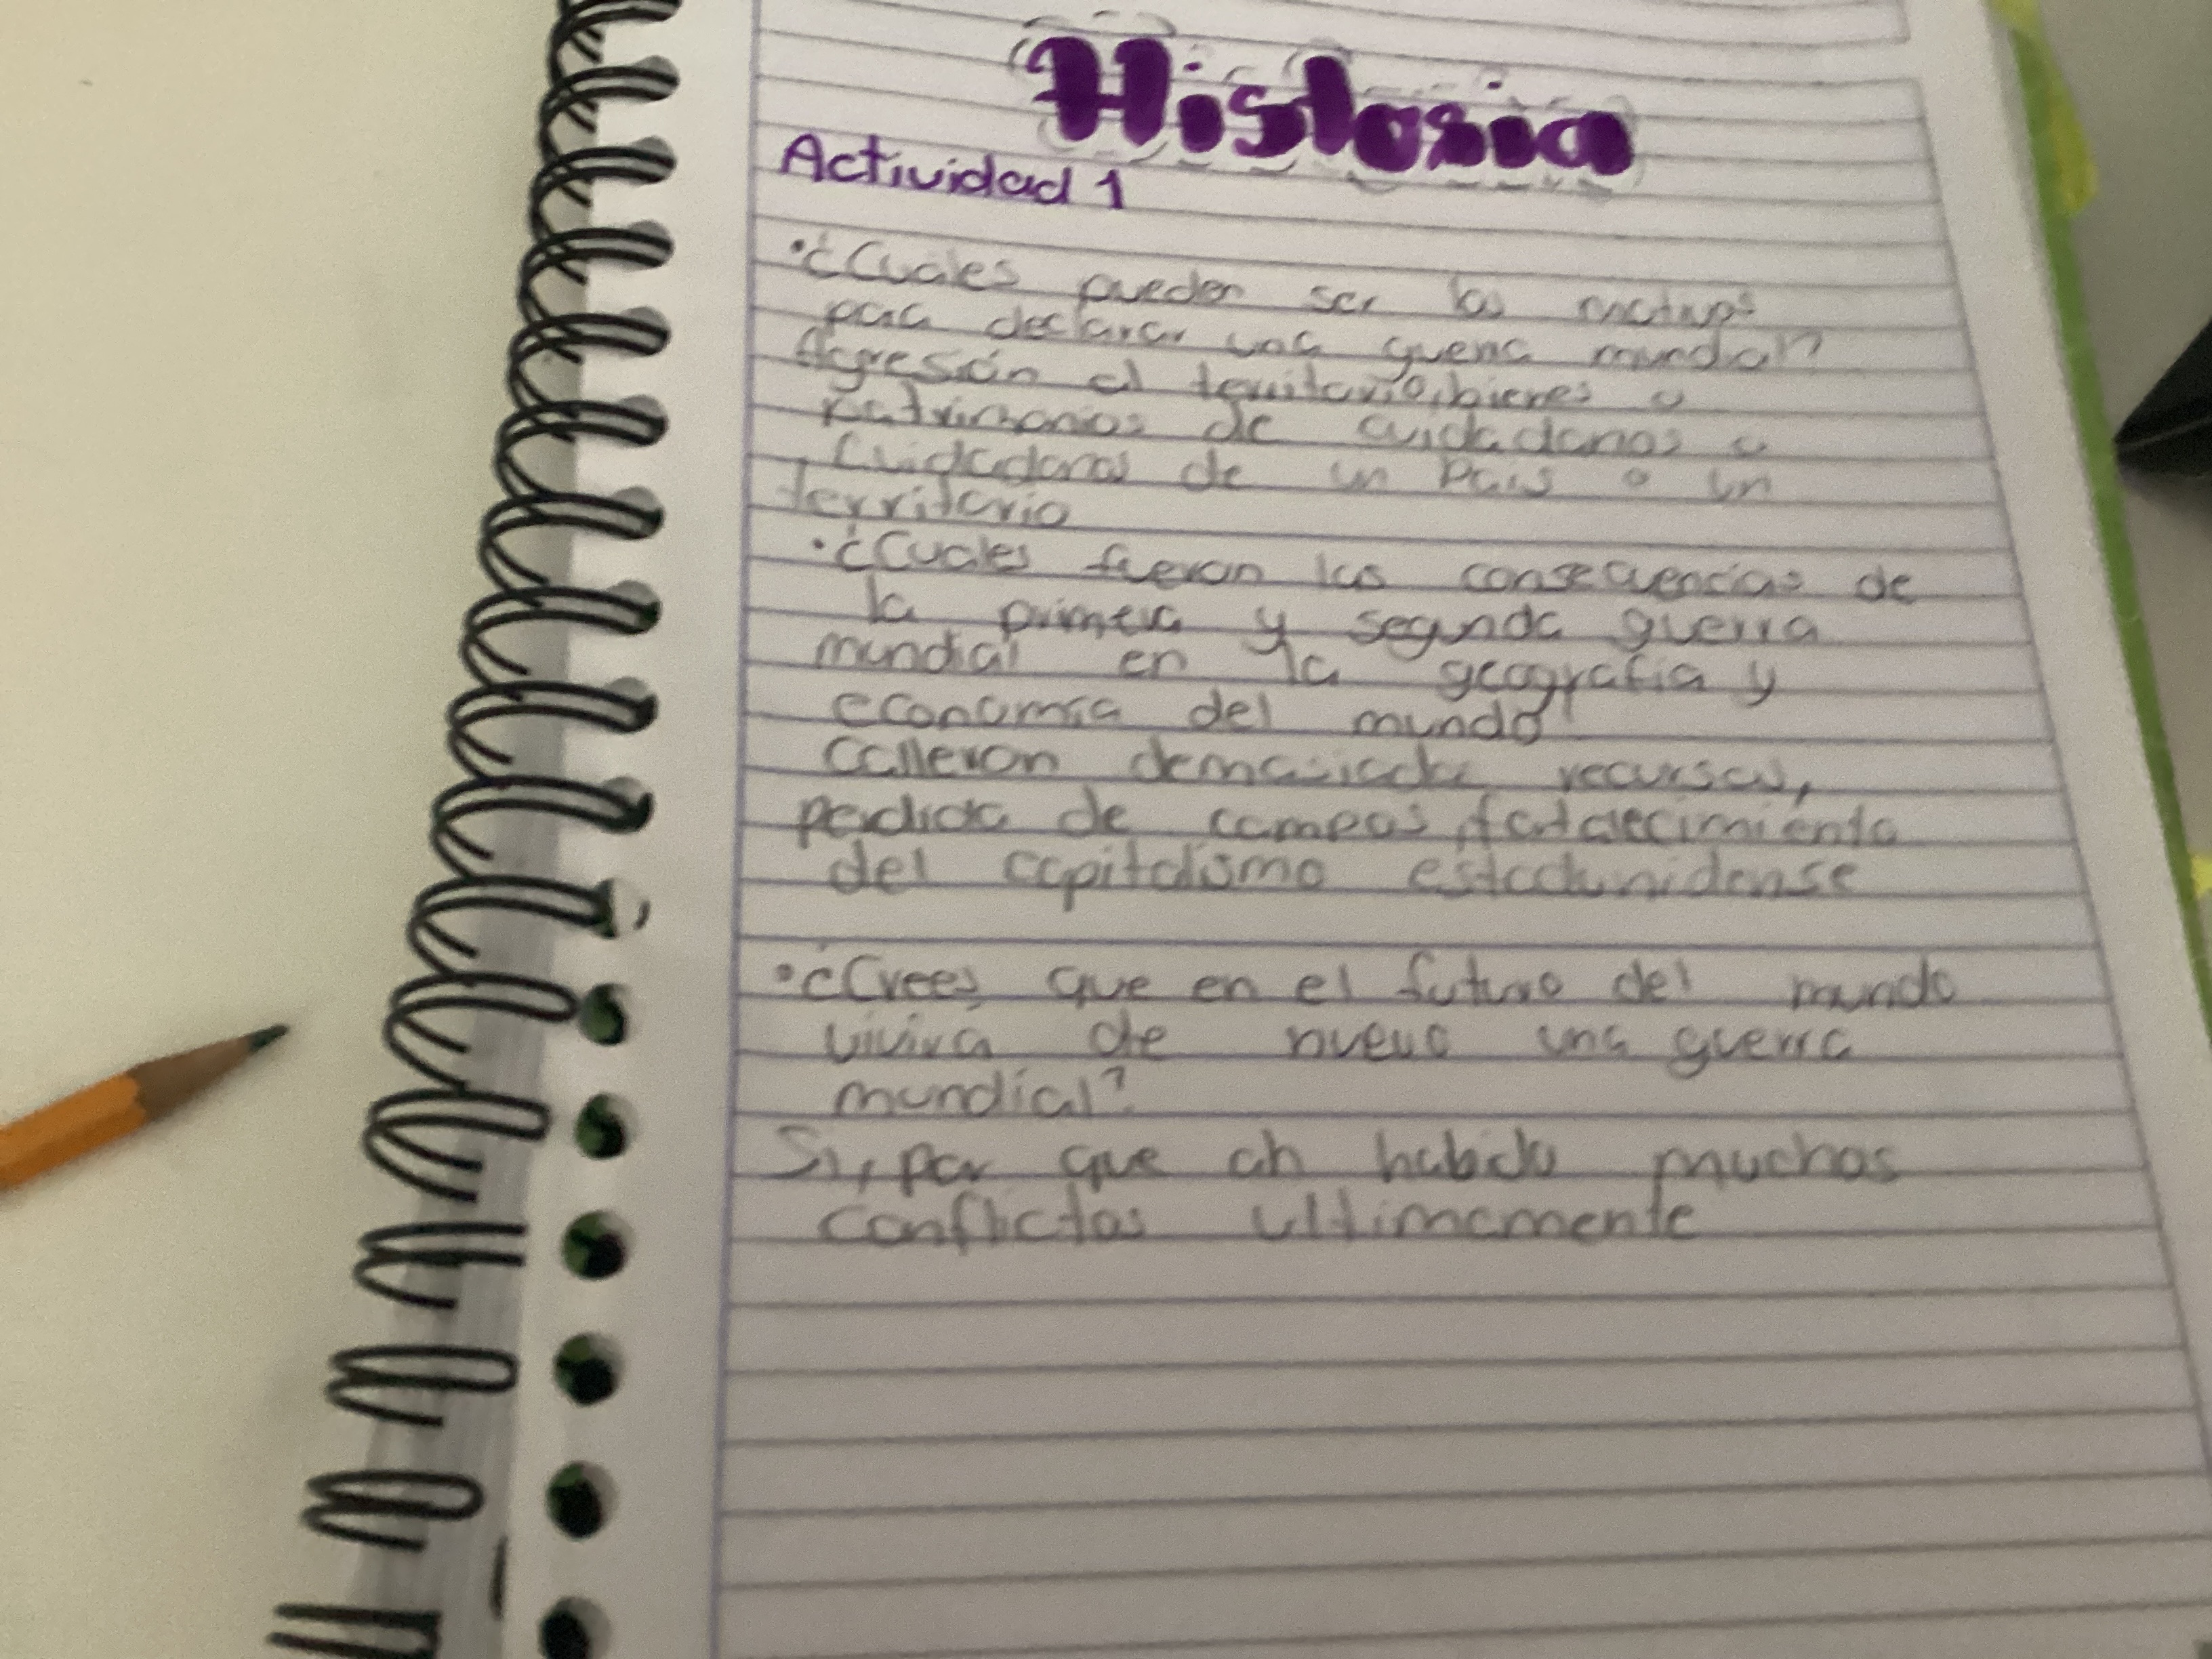 Historia
Actividad 1
•¿Cuales pueden ser los motivos
para declarar una guerra mundial?
Agresión al territorio, bienes o
patrimonios de cuidadanos o
cuidadanas de un País o un
territorio
•¿Cuales fueron las consecuencias de
la primera y segunda guerra
mundial en la geografia y
economía del mundo?
calleron demasiados recursos,
perdida de campos, fortalecimiento
del capitalismo estadunidense
•¿Crees que en el futuro del mundo
vivira de nuevo una guerra
mundial?
Si, por que ah habido muchos
conflictos ultimamente